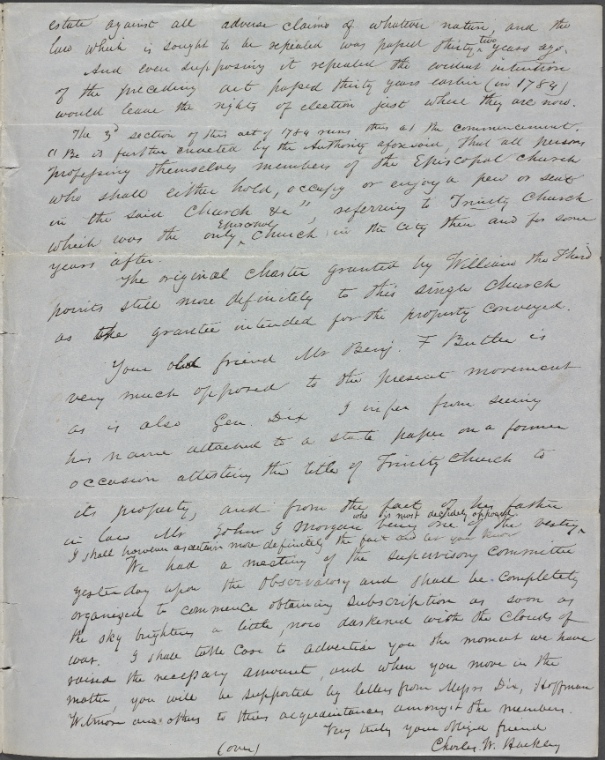 estate against all adverse claims of whatever nature, and the
law which is sought to be repealed was passed thirty two years ago.
And even supposing it repealed the evident intention
of the preceding act passed thirty years earlier (in 1784)
would leave the rights of election just where they are now.
The 3d section of this act of 1784 runs thus at the commencement.
"Be it further enacted by the Authority aforesaid, that all persons
professing themselves members of the Episcopal church
who shall either hold, occupy or enjoy a pew or seat
in the said Church &c", referring to Trinity Church
which was the only Episcopal Church in the city then and for some
years after.
The original charter granted by William the Third
points still more definitely to this single church
as the grantee intended for the property conveyed.
Your old friend Mr Benj. F Butler is
very much opposed to the present movement
as is also Gen. Dix I infer from seeing
his name attached to a state paper on a former
occasion attesting the title of Trinity Church to
its property, and from the fact of his
in law Mr John J Morgan being one of the vestry who is most actively opposed
I shall however ascertain more definitely the fact and let you know
We had a meeting of the supervisory committee
yesterday upon the Observatory and shall be completely
organized to commence obtaining subscription as soon as
the sky brightens a little, now darkened with the clouds of
war. I shall take care to advertise you the moment we have
raised the necessary amount, and when you move in the
matter, you will be supported by letters from Messrs Dix, Hoffman
Wetmore and others to their acquaintances amongst the members.
Very truly your obliged friend
Charles W. Hackley
(over)